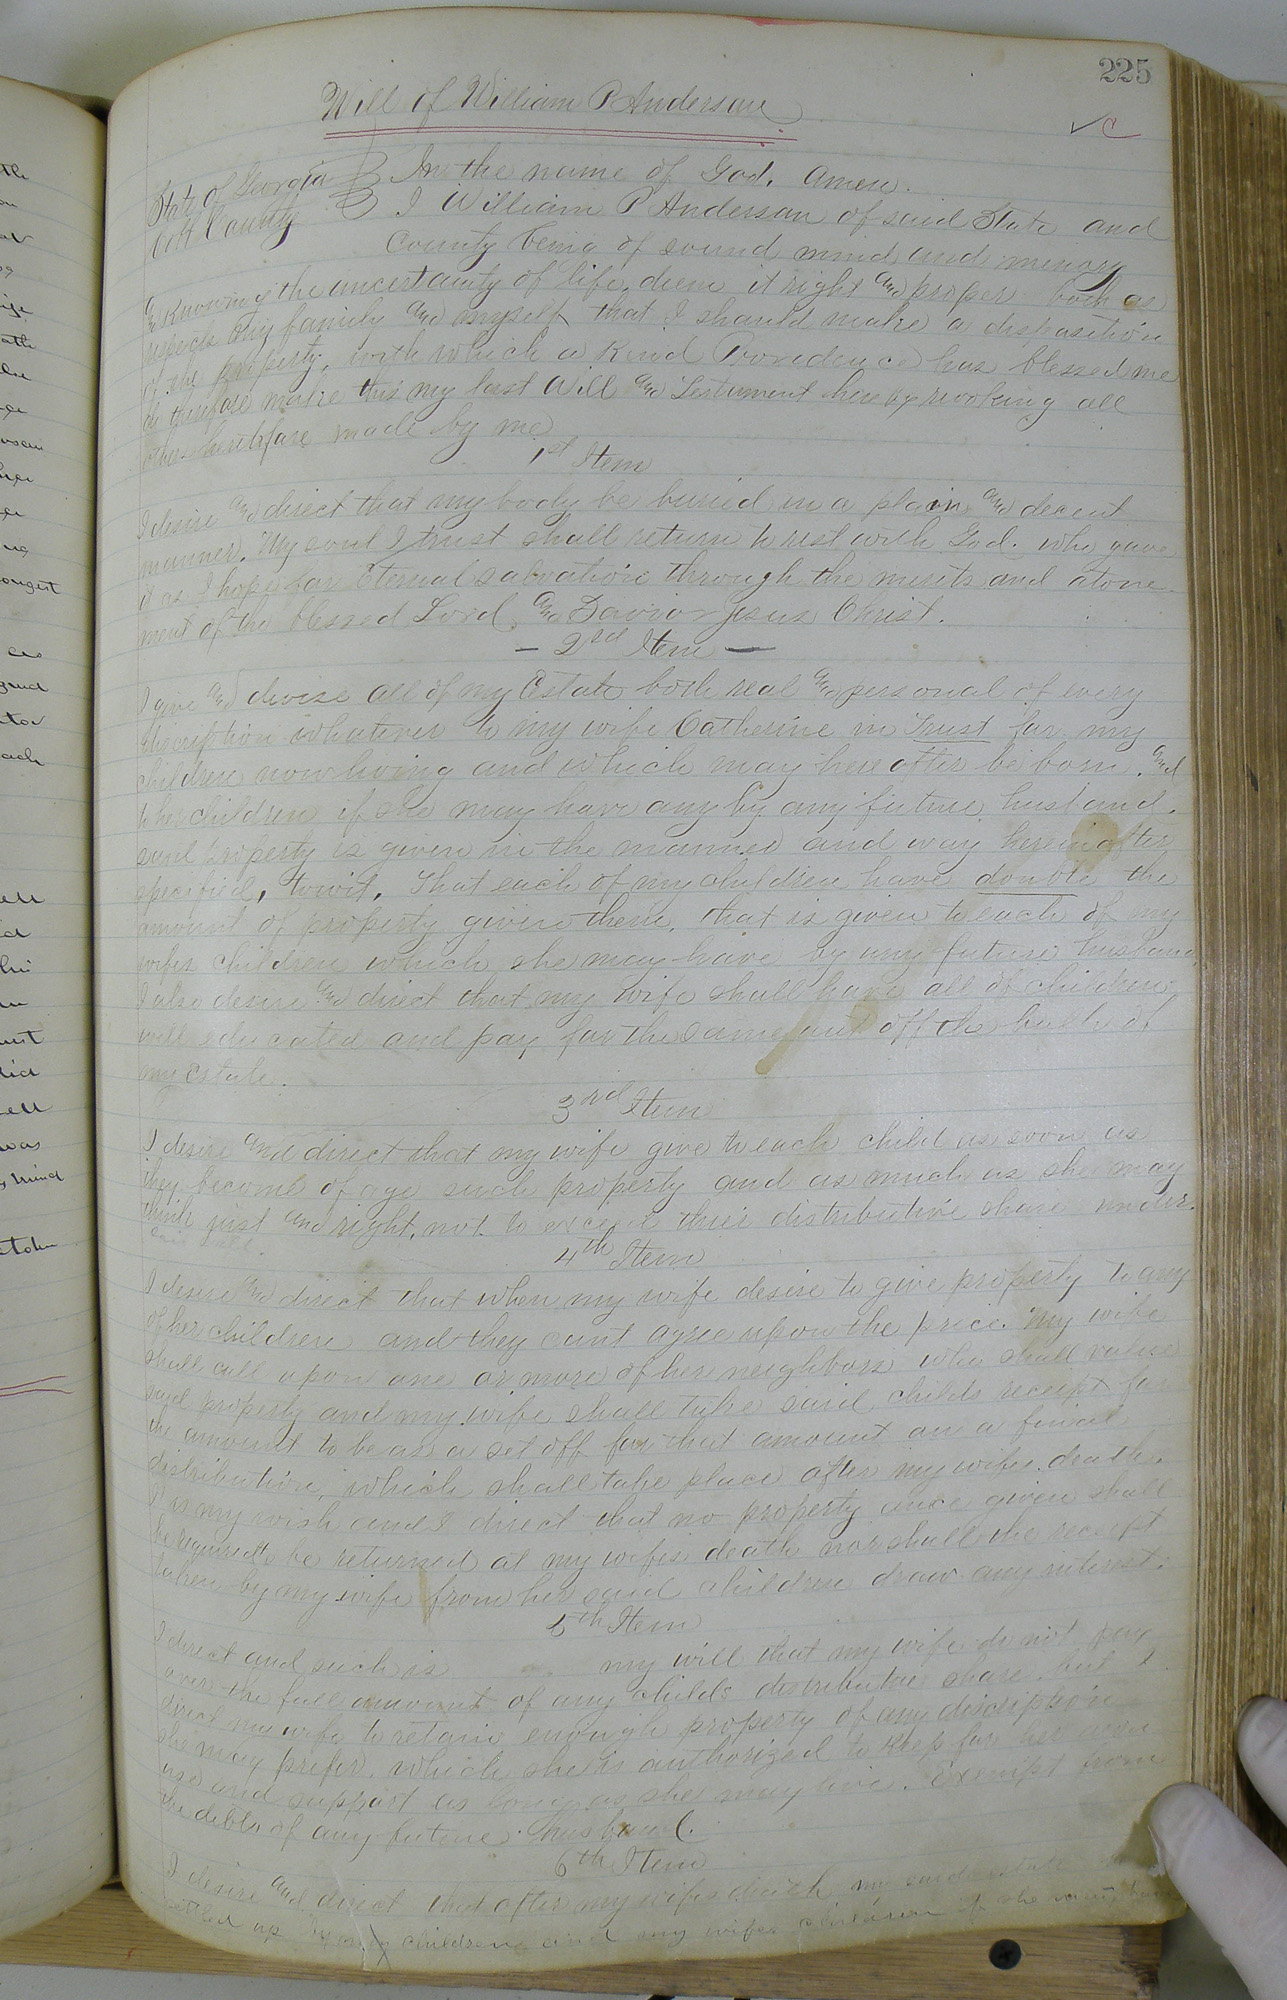 225
Will of William P Anderson
C
State of Georgia
Cobb County
In the name of God. Amen.
I William P Anderson of said State and
County being of sound mind and memory
& Knowing the uncertainty of life, deem it right and proper both as
respects my family and myself that I should make a disposition
of the property, with which a Kind Providence has blessed me
do therefore make this my last Will and Testament hereby revoking all
others heretofore made by me
1st Item
I desire and direct that my body be buried in a plain and decent
manner. My soul I trust shall return to rest with God. who gave
it as I hope for Eternal salvation through the merits and atone
ment of the blessed Lord and Savior Jesus Christ.
- 2nd Item -
I give and devise all of my Estate both real and personal of every
discription whatever to my wife Catherine in Trust for my
children now living and which may hereafter be born. And
to her children if she may have any by any future husband.
said property is given in the manner and way hereinafter
specified, towit, That each of my children have double the
amount of property given them, that is given to each of my
wifes children which she may have by any future husband,
I also desire and direct that my wife shall have all of children
well educated and pay for the same out off the bulk of
my Estate.
3rd Item
I desire and direct that my wife give to each child as soon as
they become of age such property and as much as she may
think just and right, not to exceed their distributive share under
4th Item
I desire and direct that when my wife desire to give property to any
of her children and they cant agree upon the price. My wife
shall call upon one or more of her neighbors who shall value
said property and my wife shall take said childs receipt for
the amount to be as a set off for that amount on a final
distribution, which shall take place after my wifes death.
I is my wish and I direct that no property once given shall
be required to be returned at my wifes death nor shall the receipt
taken by my wife from her said children draw any interest.
5th Item
I direct and such is my will that my wife do not pay
over the full amount of any childs distributive share but I
direct my wife to retain enough property of any discription
she may prefer which she is authorized to Keep for her own
use and support as long as she may live. Exempt from
the debts of any future husband.
6th Item
I desire and direct that after my wifes death my said estate
settled up by my children and my wifes children if she may have